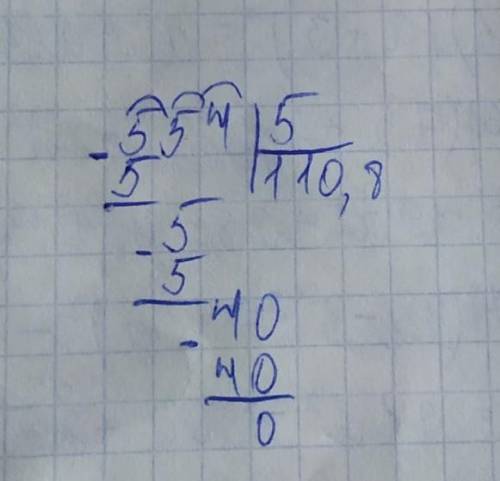 - 554 | 5
5 110,8
- 5
5
- 40
40
0